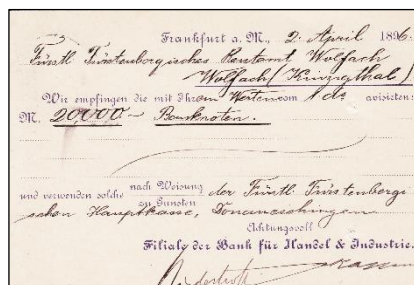 Frankfurt a. M., 2. April 1896.
Fürstl Fürstenbergisches Rentamt Wolfach
Wolfach (Kinzigthal)
Wir empfingen die mit Ihrem Werten vom 1 ds avisierten
M. 20000 — Banknoten.
und verwenden solche nach Weisung der Fürstl. Fürstenbergi
zu Gunsten
schen Hauptkasse, Donaueschingen
Achtungsvoll
Filiale der Bank für Handel & Industrie.